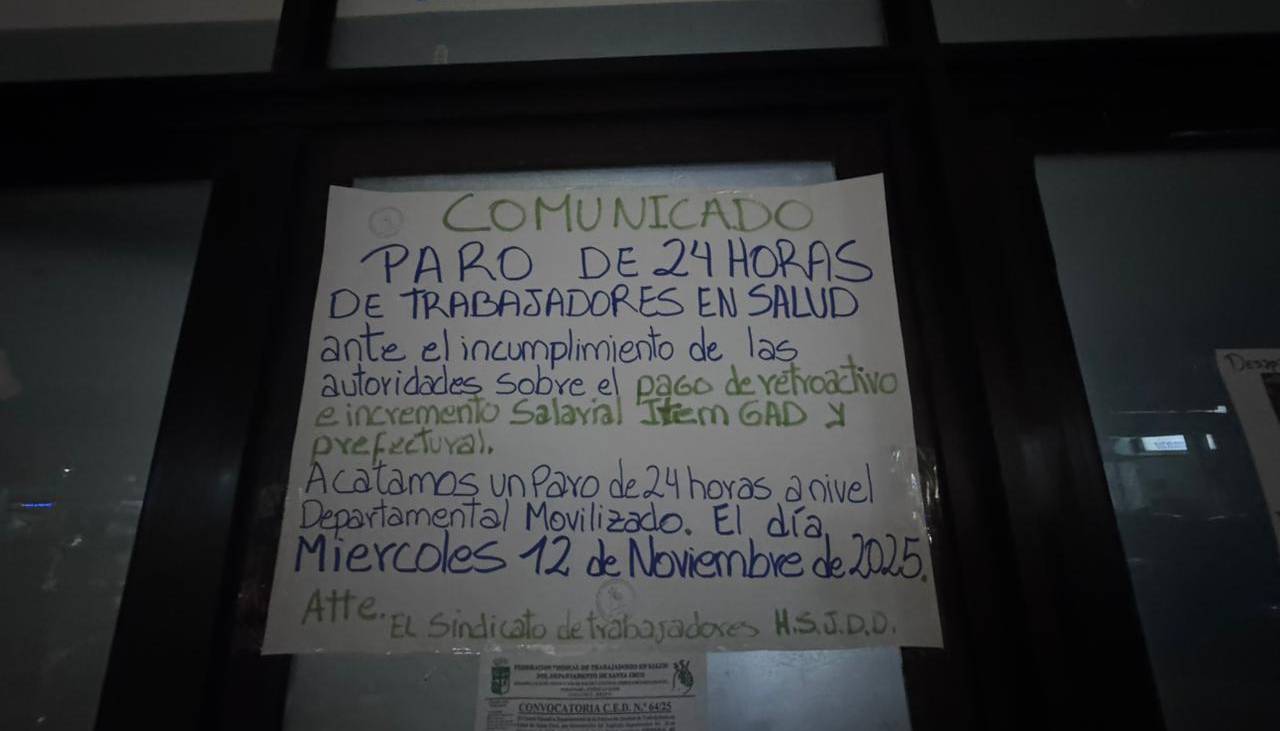 COMUNICADO
PARO DE 24 HORAS
DE TRABAJADORES EN SALUD
ante el incumplimiento de las
autoridades sobre el pago de retroactivo
e incremento Salarial Item GAD y
prefectural.
Acatamos un Paro de 24 horas a nivel
Departamental Movilizado. El día
Miercoles 12 de Noviembre de 2025.
Atte. El Sindicato de trabajadores H.S.J.D.D.
FEDERACION SINDICAL DE TRABAJADORES EN SALUD
DEL DEPARTAMENTO DE SANTA CRUZ
CONVOCATORIA C.E.D. N.º 64/25